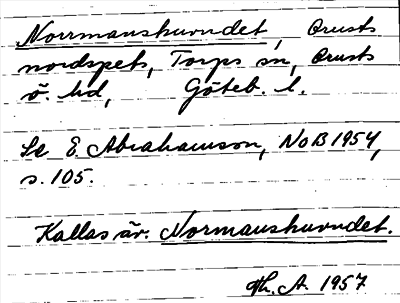 Norrmanshuvudet, Orusts
nordspets, Torps sn, Orusts
ö. hd, Göteb. l.
Se E. Abrahamson, NoB 1954,
s. 105.
Kallas äv. Normanshuvudet.
Hj. A. 1957